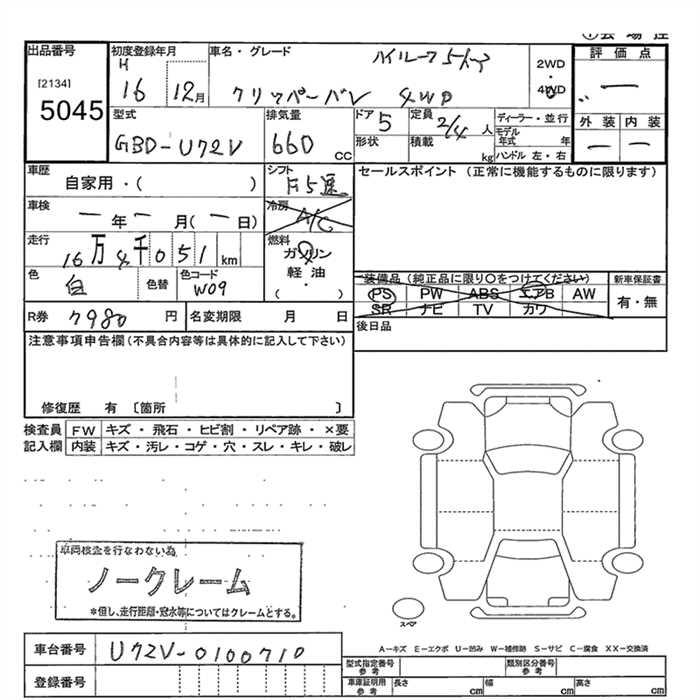 出品番号
[2134]
5045
初度登録年月
H
16 12月
車名・グレード
ハイルーフ5ドア
クリッパーバン 4WD
2WD
・
4WD
評価点
―
外装 内装
― ―
型式
GBD-U72V
排気量
660 cc
ドア 5
形状
定員 2/4 人
積載 kg
ディーラー・並行
モデル年式 年
ハンドル 左・右
車歴
自家用・( )
シフト
F5速
セールスポイント (正常に機能するものに限ります)
車検
― 年 ― 月(― 日)
冷房
A/C
走行
16万4千051 km
燃料
ガソリン
軽・油
・
( )
色
白
色替
色コード
W09
装備品(純正品に限り〇をつけてください)
PS PW ABS エアB AW
SR ナビ TV カワ
新車保証書
有・無
R券 7980 円
名変期限 月 日
後日品
注意事項申告欄(不具合内容等は具体的に記入して下さい)
修復歴 有 〔箇所 〕
検査員 FW キズ・飛石・ヒビ割・リペア跡・×要
記入欄 内装 キズ・汚レ・コゲ・穴・スレ・キレ・破レ
車両検査を行なわない為
ノークレーム
*但し、走行距離・冠水等についてはクレームとする。
スペア
A-キズ E-エクボ U-凹み W-補修跡 S-サビ C-腐食 XX-交換済
車台番号 U72V-0100710
登録番号
型式指定番号 参考
類別区分番号 参考
車庫証明用 参考
長さ cm 幅 cm 高さ cm